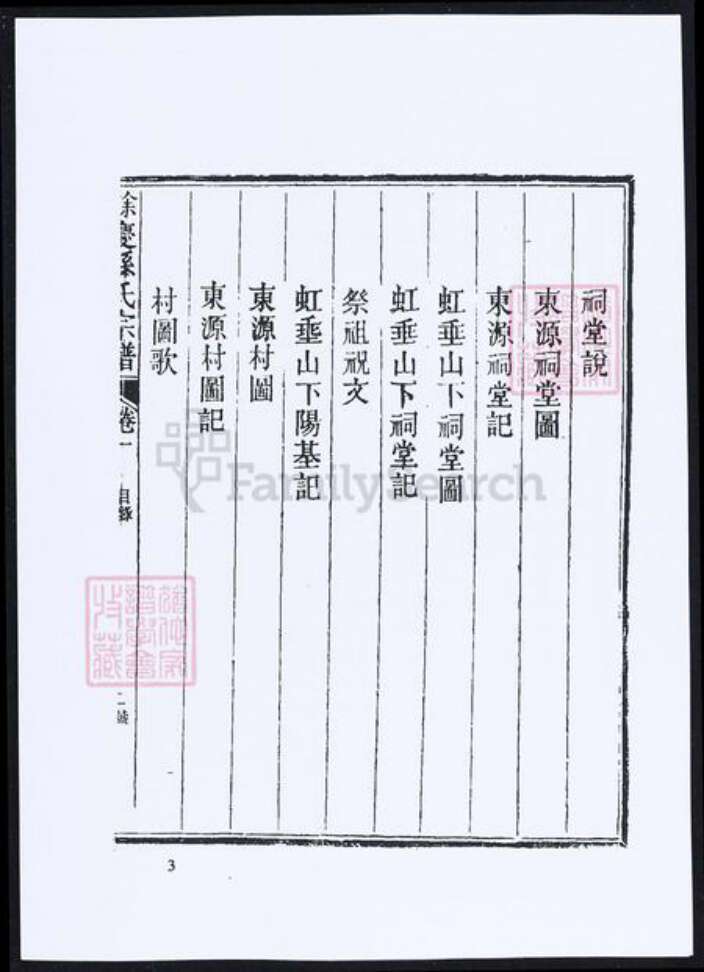 祠堂說
東源祠堂圖
東源祠堂記
虹垂山下祠堂圖
虹垂山下祠堂記
祭祖祝文
虹垂山下陽基記
東源村圖
東源村圖記
村圖歌
餘慶孫氏宗譜 卷一 目錄
FamilySearch
3